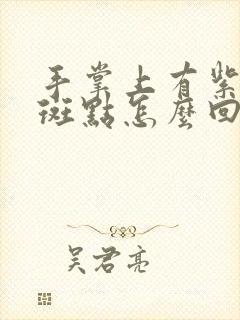 手掌上有紫
斑點怎麼回
吴君亮